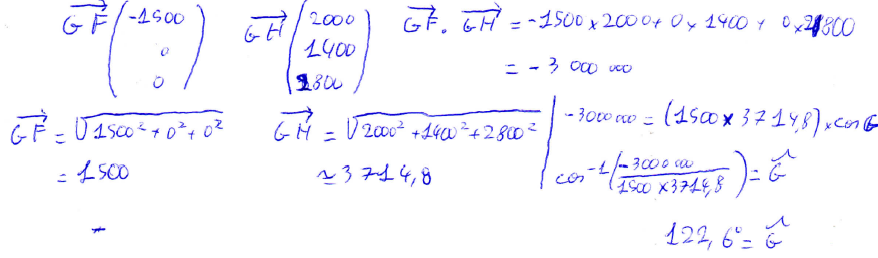 $\overrightarrow{GF}\begin{pmatrix}-1500\\0\\0\end{pmatrix}$ $\overrightarrow{GH}\begin{pmatrix}2000\\1400\\2800\end{pmatrix}$ $\overrightarrow{GF}.\overrightarrow{GH} = -1500 \times 2000 + 0 \times 1400 + 0 \times 2800$
$= -3\,000\,000$
$\overrightarrow{GF} = \sqrt{1500^2 + 0^2 + 0^2}$
$= 1500$
$\overrightarrow{GH} = \sqrt{2000^2 + 1400^2 + 2800^2}$
$\simeq 3714,8$
$-3000000 = (1500 \times 3714,8) \times \cos G$
$\cos^{-1}\left(\frac{-3000000}{1500 \times 3714,8}\right) = \widehat{G}$
$122,6° = \widehat{G}$